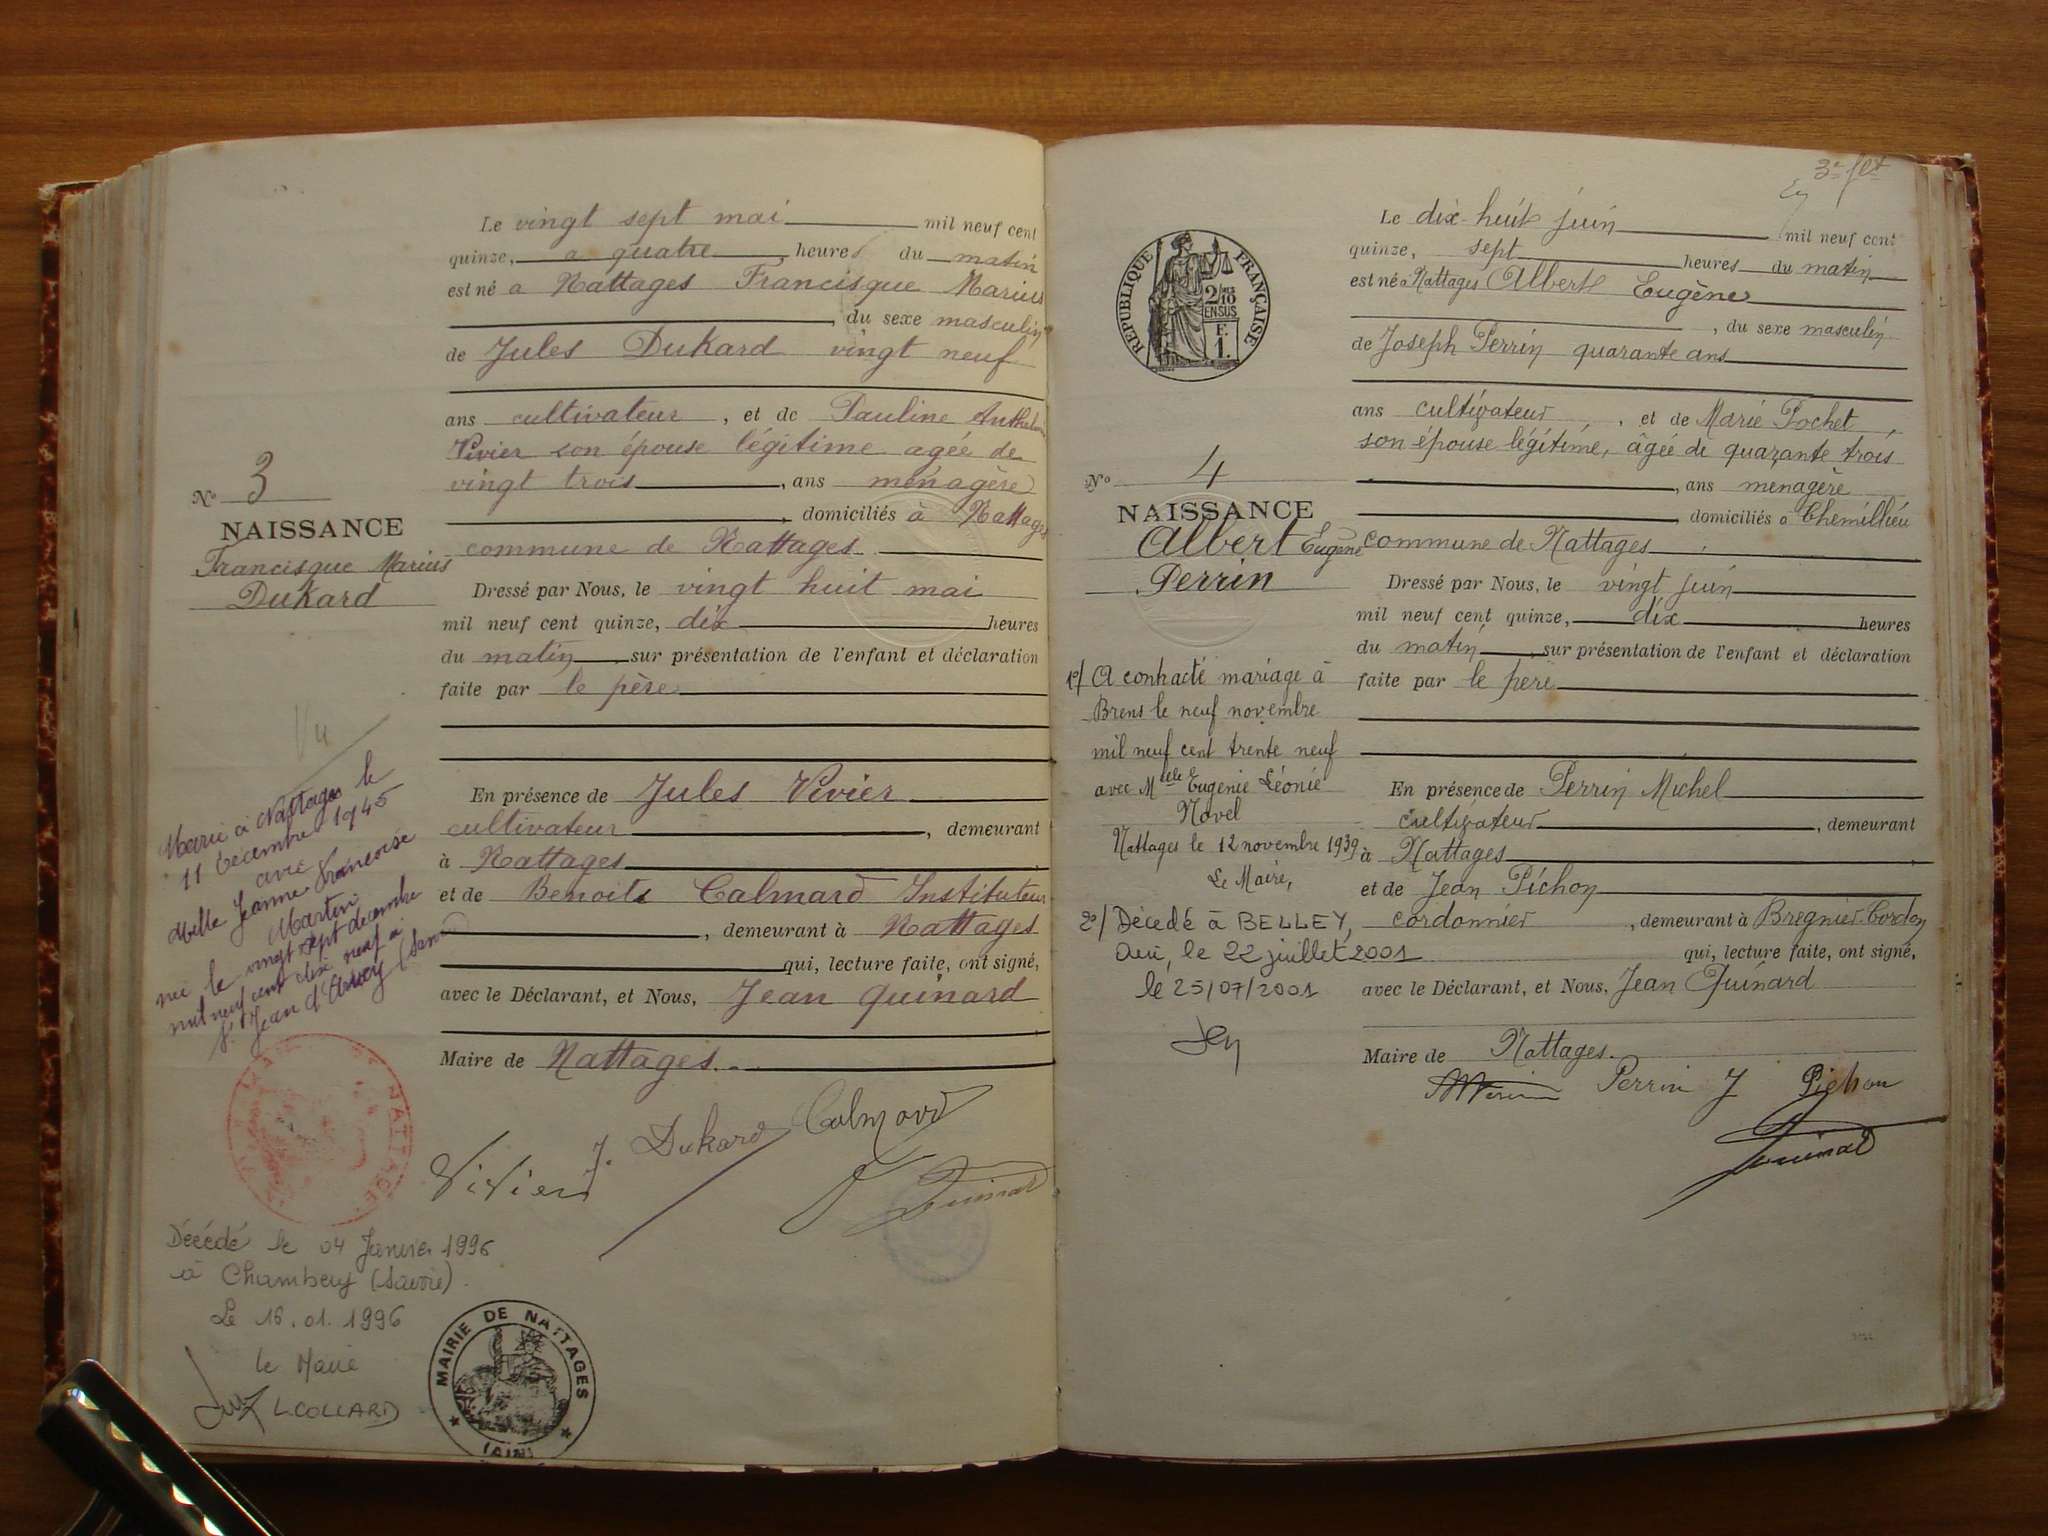 Le vingt sept mai mil neuf cent
quinze, a quatre heures du matin
est né a Nattages Francisque Marius
, du sexe masculin
de Jules Dukard vingt neuf
ans cultivateur , et de Pauline Anthel
Vivier son épouse légitime agée de
vingt trois , ans ménagère
, domiciliés à Nattages
commune de Nattages
Dressé par Nous, le vingt huit mai
mil neuf cent quinze, dix heures
du matin sur présentation de l'enfant et déclaration
faite par le père
En présence de Jules Vivier
cultivateur , demeurant
à Nattages
et de Benoits Calmard Instituteur
, demeurant à Nattages
qui, lecture faite, ont signé,
avec le Déclarant, et Nous, Jean Guinard
Maire de Nattages.
Vivier J. Dukard Calmard
Guinard
No 3
NAISSANCE
Francisque Marius
Dukard
Vu
Marié à Nattages le
11 décembre 1945
avec
Melle Jeanne Françoise
Martin
née le vingt sept décembre
mil neuf cent dix neuf à
St Jean d'Arvey (Savoie)
Décédé le 04 Janvier 1996
à Chambery (Savoie).
Le 16.01.1996
le Maire
L COLLARD
MAIRIE DE NATTAGES
(AIN)
3e fet
Le dix-huit juin mil neuf cent
quinze, sept heures du matin
est né à Nattages Albert Eugène
, du sexe masculin
de Joseph Perrin quarante ans
ans cultivateur , et de Marie Pochet ,
son épouse légitime, âgée de quarante trois
, ans ménagère
, domiciliés à Chemillieu
commune de Nattages
Dressé par Nous, le vingt juin
mil neuf cent quinze, dix heures
du matin , sur présentation de l'enfant et déclaration
faite par le père
En présence de Perrin Michel
cultivateur , demeurant
à Nattages
et de Jean Pichon
cordonnier , demeurant à Bregnier-Cordon
qui, lecture faite, ont signé,
avec le Déclarant, et Nous, Jean Guinard
Maire de Nattages.
Perrin J Pichon
Guinard
RÉPUBLIQUE FRANÇAISE
2/10
EN SUS
F.
1.
No 4
NAISSANCE
Albert Eugène
Perrin
1o/ A contracté mariage à
Brens le neuf novembre
mil neuf cent trente neuf
avec Melle Eugénie Léonie
Novel
Nattages le 12 novembre 1939
Le Maire,
2o/ Décédé à BELLEY,
Ain, le 22 juillet 2001
le 25/07/2001